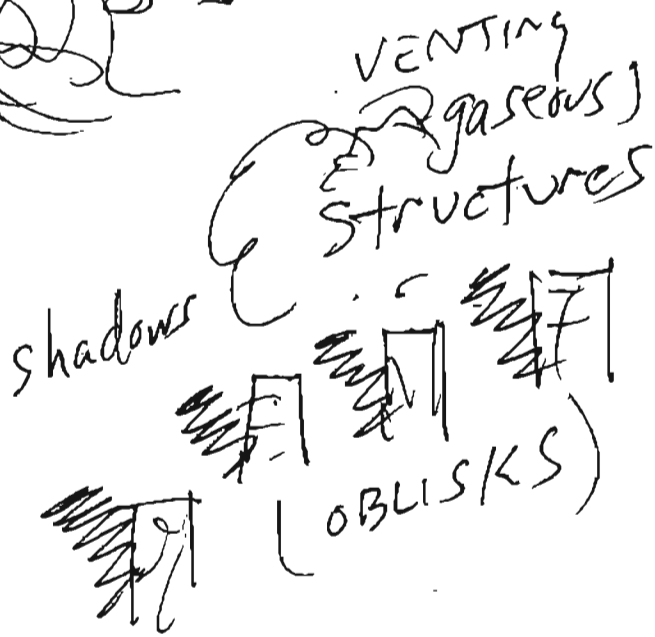 VENTING
gaseous)
structures
shadows
(OBLISKS)